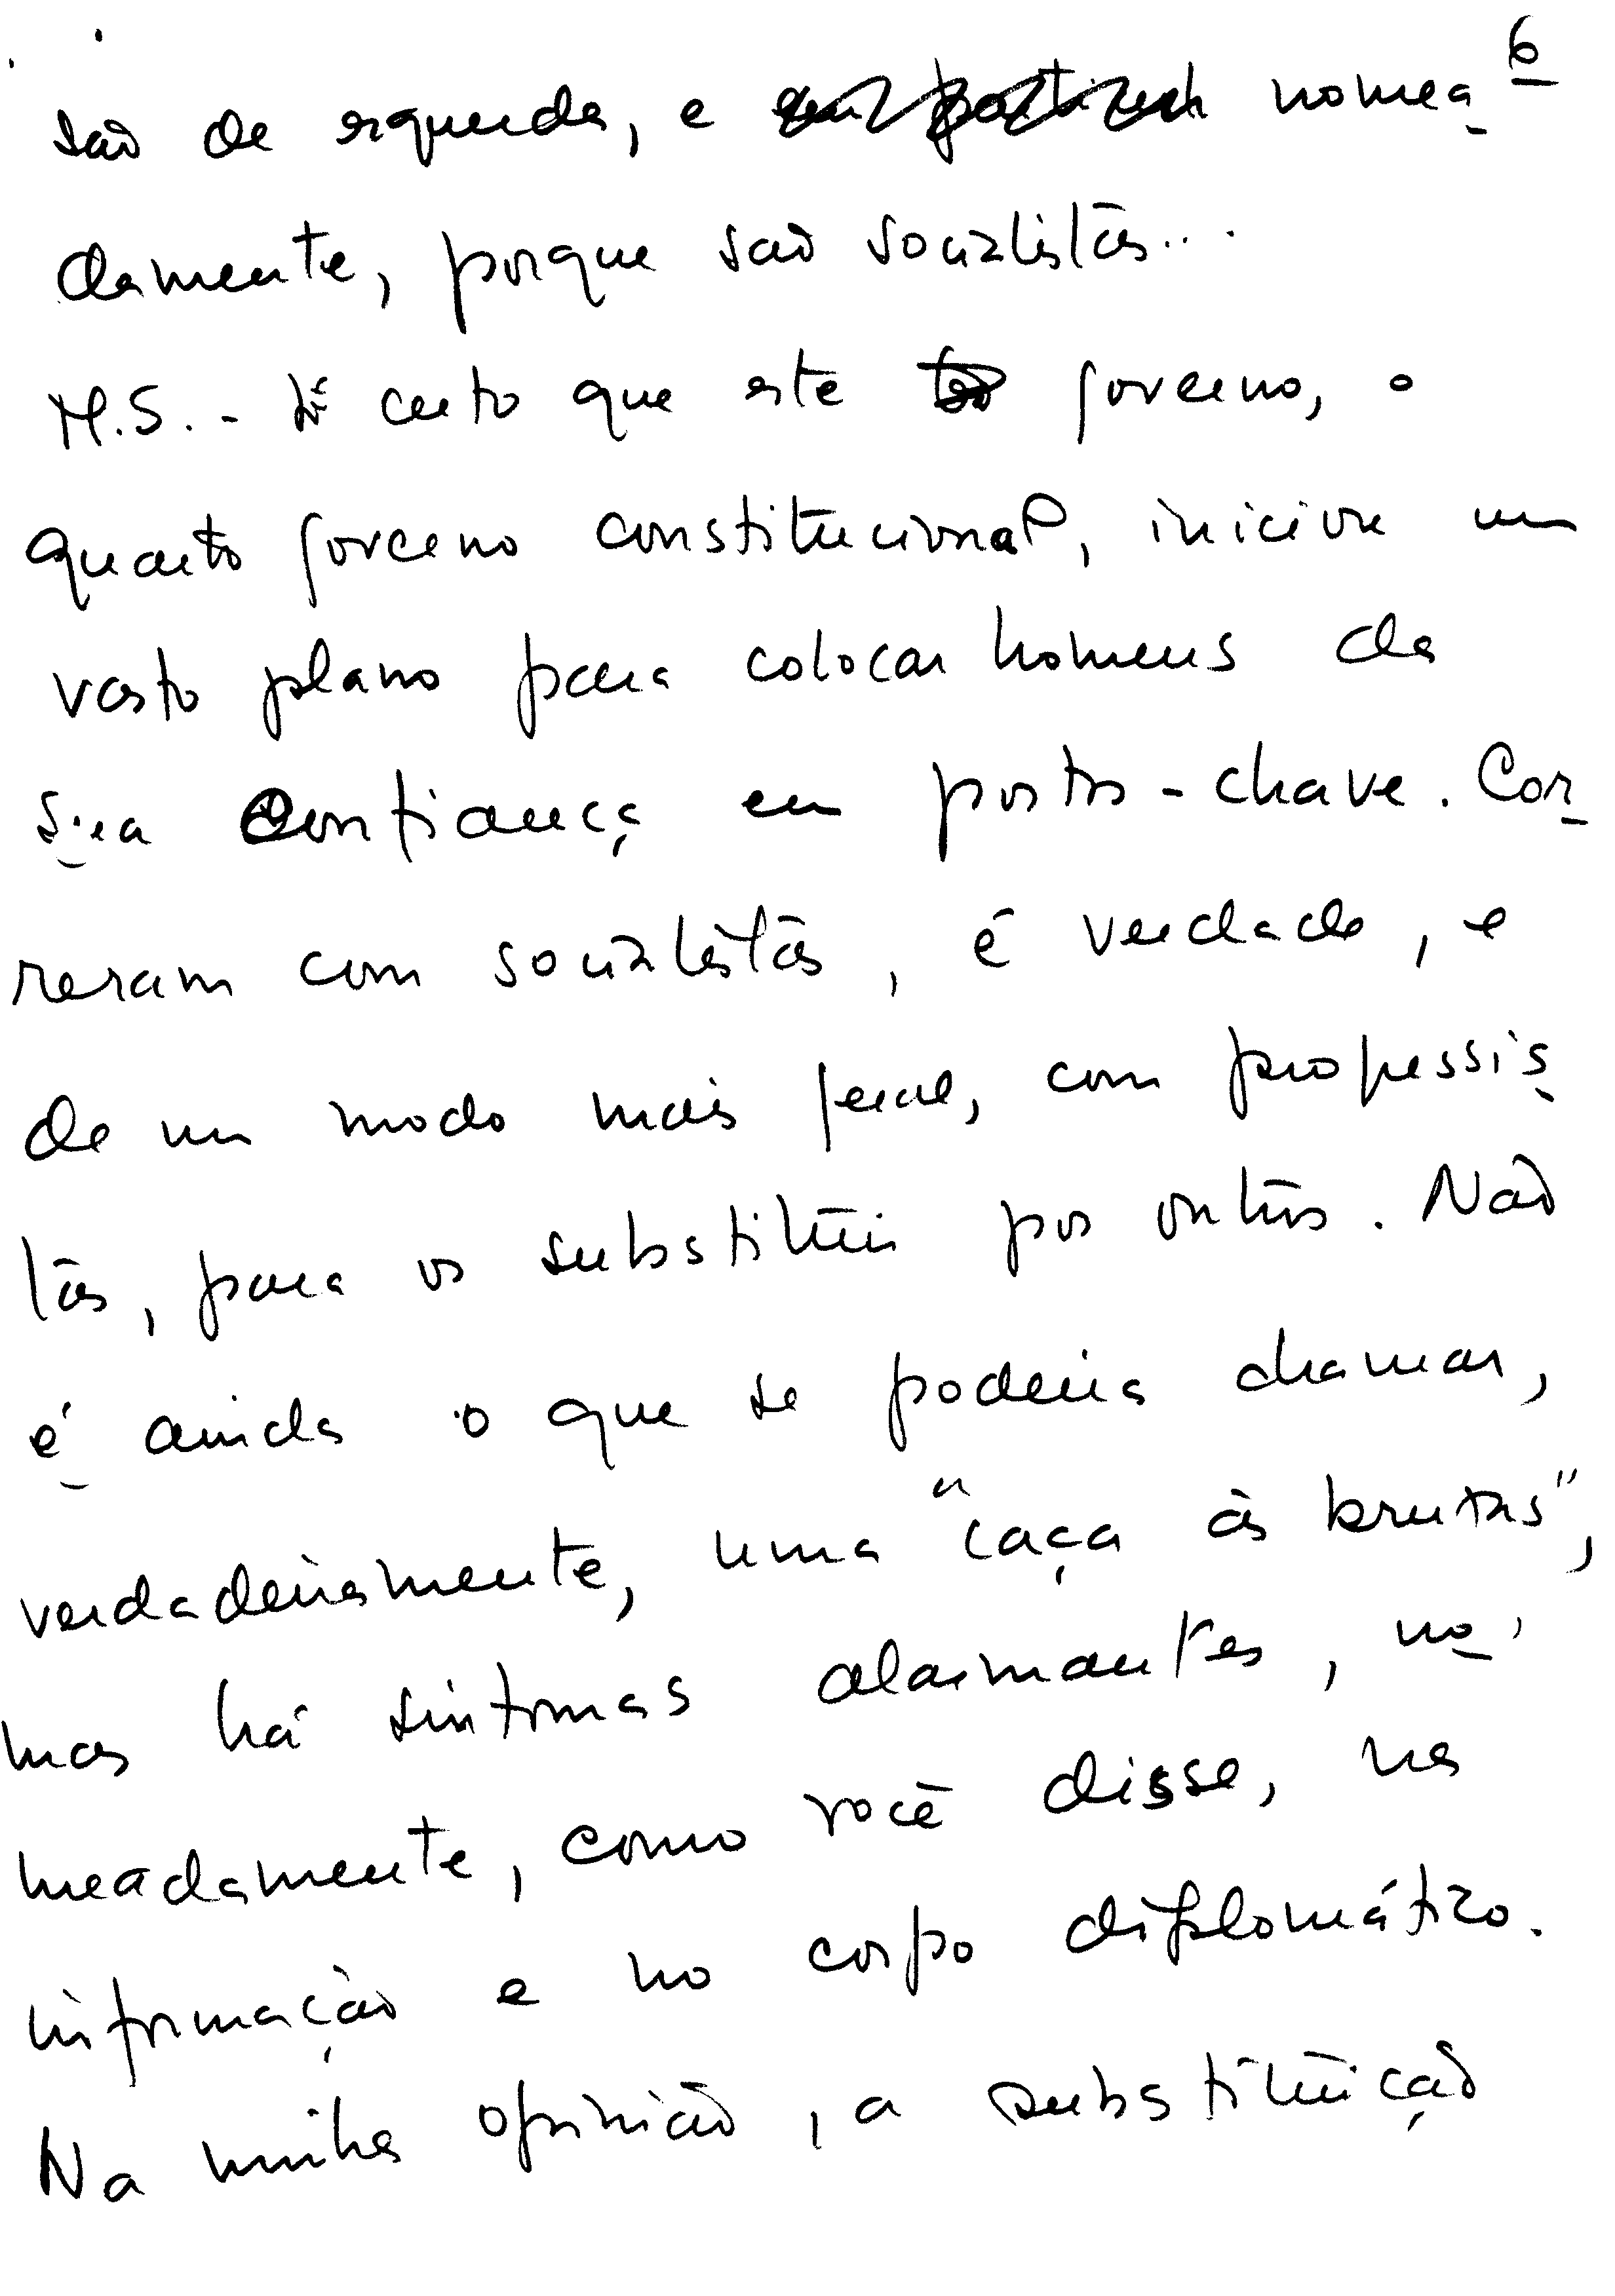 6
são de esquerda, e nomea-
damente, porque são socialistas...
M.S. - É certo que este governo, o
quarto governo constitucional, iniciou um
vasto plano para colocar homens da
sua confiança em postos-chave. Cor-
reram com socialistas, é verdade, e
de um modo mais geral, com progressis-
tas, para os substituir por outros. Não
é ainda o que se poderia chamar,
verdadeiramente, uma "caça às bruxas",
mas há sintomas alarmantes, no-
meadamente, como você disse, na
informação e no corpo diplomático.
Na minha opinião, a substituição